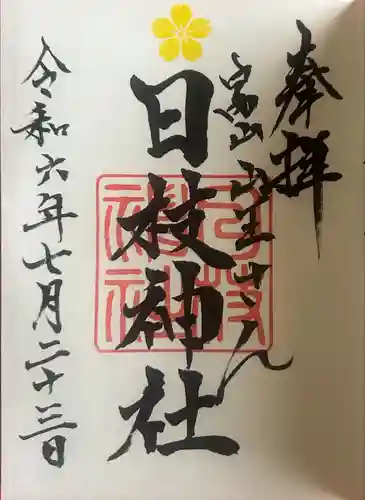 奉拝
富山山王さん
日枝神社
日枝神社
令和六年七月二十三日